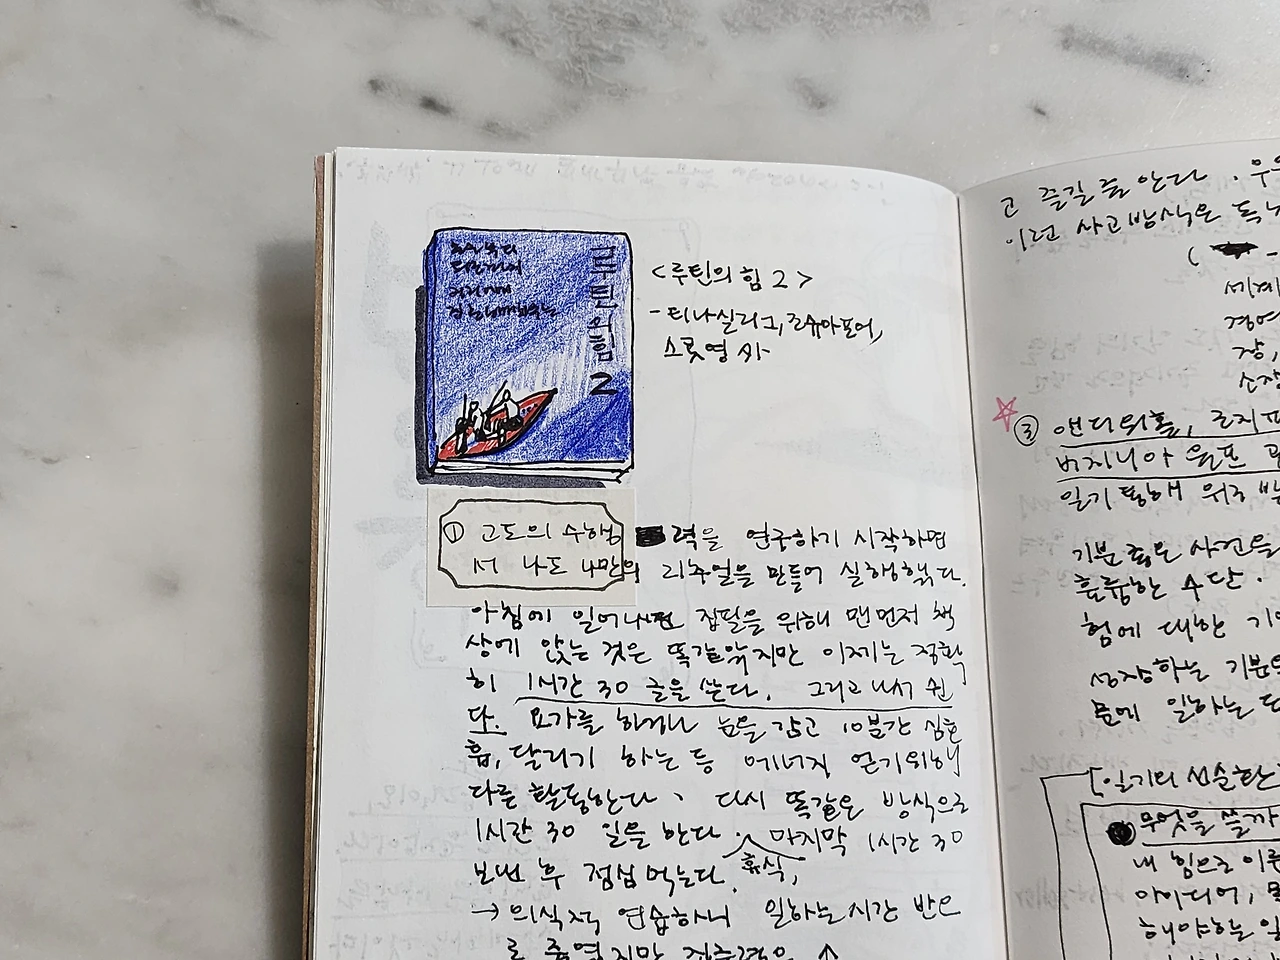 루틴의 힘 2
<루틴의 힘 2>
- 티나실리그, 조슈아포어,
스콧영 外
① 고도의 수행 력을 연구하기 시작하면
서 나도 나만의 리추얼을 만들어 실행했다.
아침에 일어나면 집필을 위해 맨먼저 책
상에 앉는 것은 똑같았지만 이제는 정확
히 1시간 30 글을 쓴다. 그리고 나서 쉰
다. 요가를 하거나 눈을 감고 10분간 심호
흡, 달리기 하는 등 에너지 얻기위해
다른 활동한다. 다시 똑같은 방식으로
1시간 30 일을 한다. 휴식, 마지막 1시간 30
보낸 후 점심 먹는다.
→ 의식적 연습하니 일하는시간 반으
로 줄였지만 집중력은 ↑
고 즐길 줄 안다.
이런 사고방식은
세계
경영
장,
③ 앤디워홀,
버지니아 울프
일기 통해
기분 좋은 사건을
훌륭한 수단.
힘에 대한
성장하는
문에 일하는
무엇을 쓸까
내 힘으로
아이디어,
해야하는